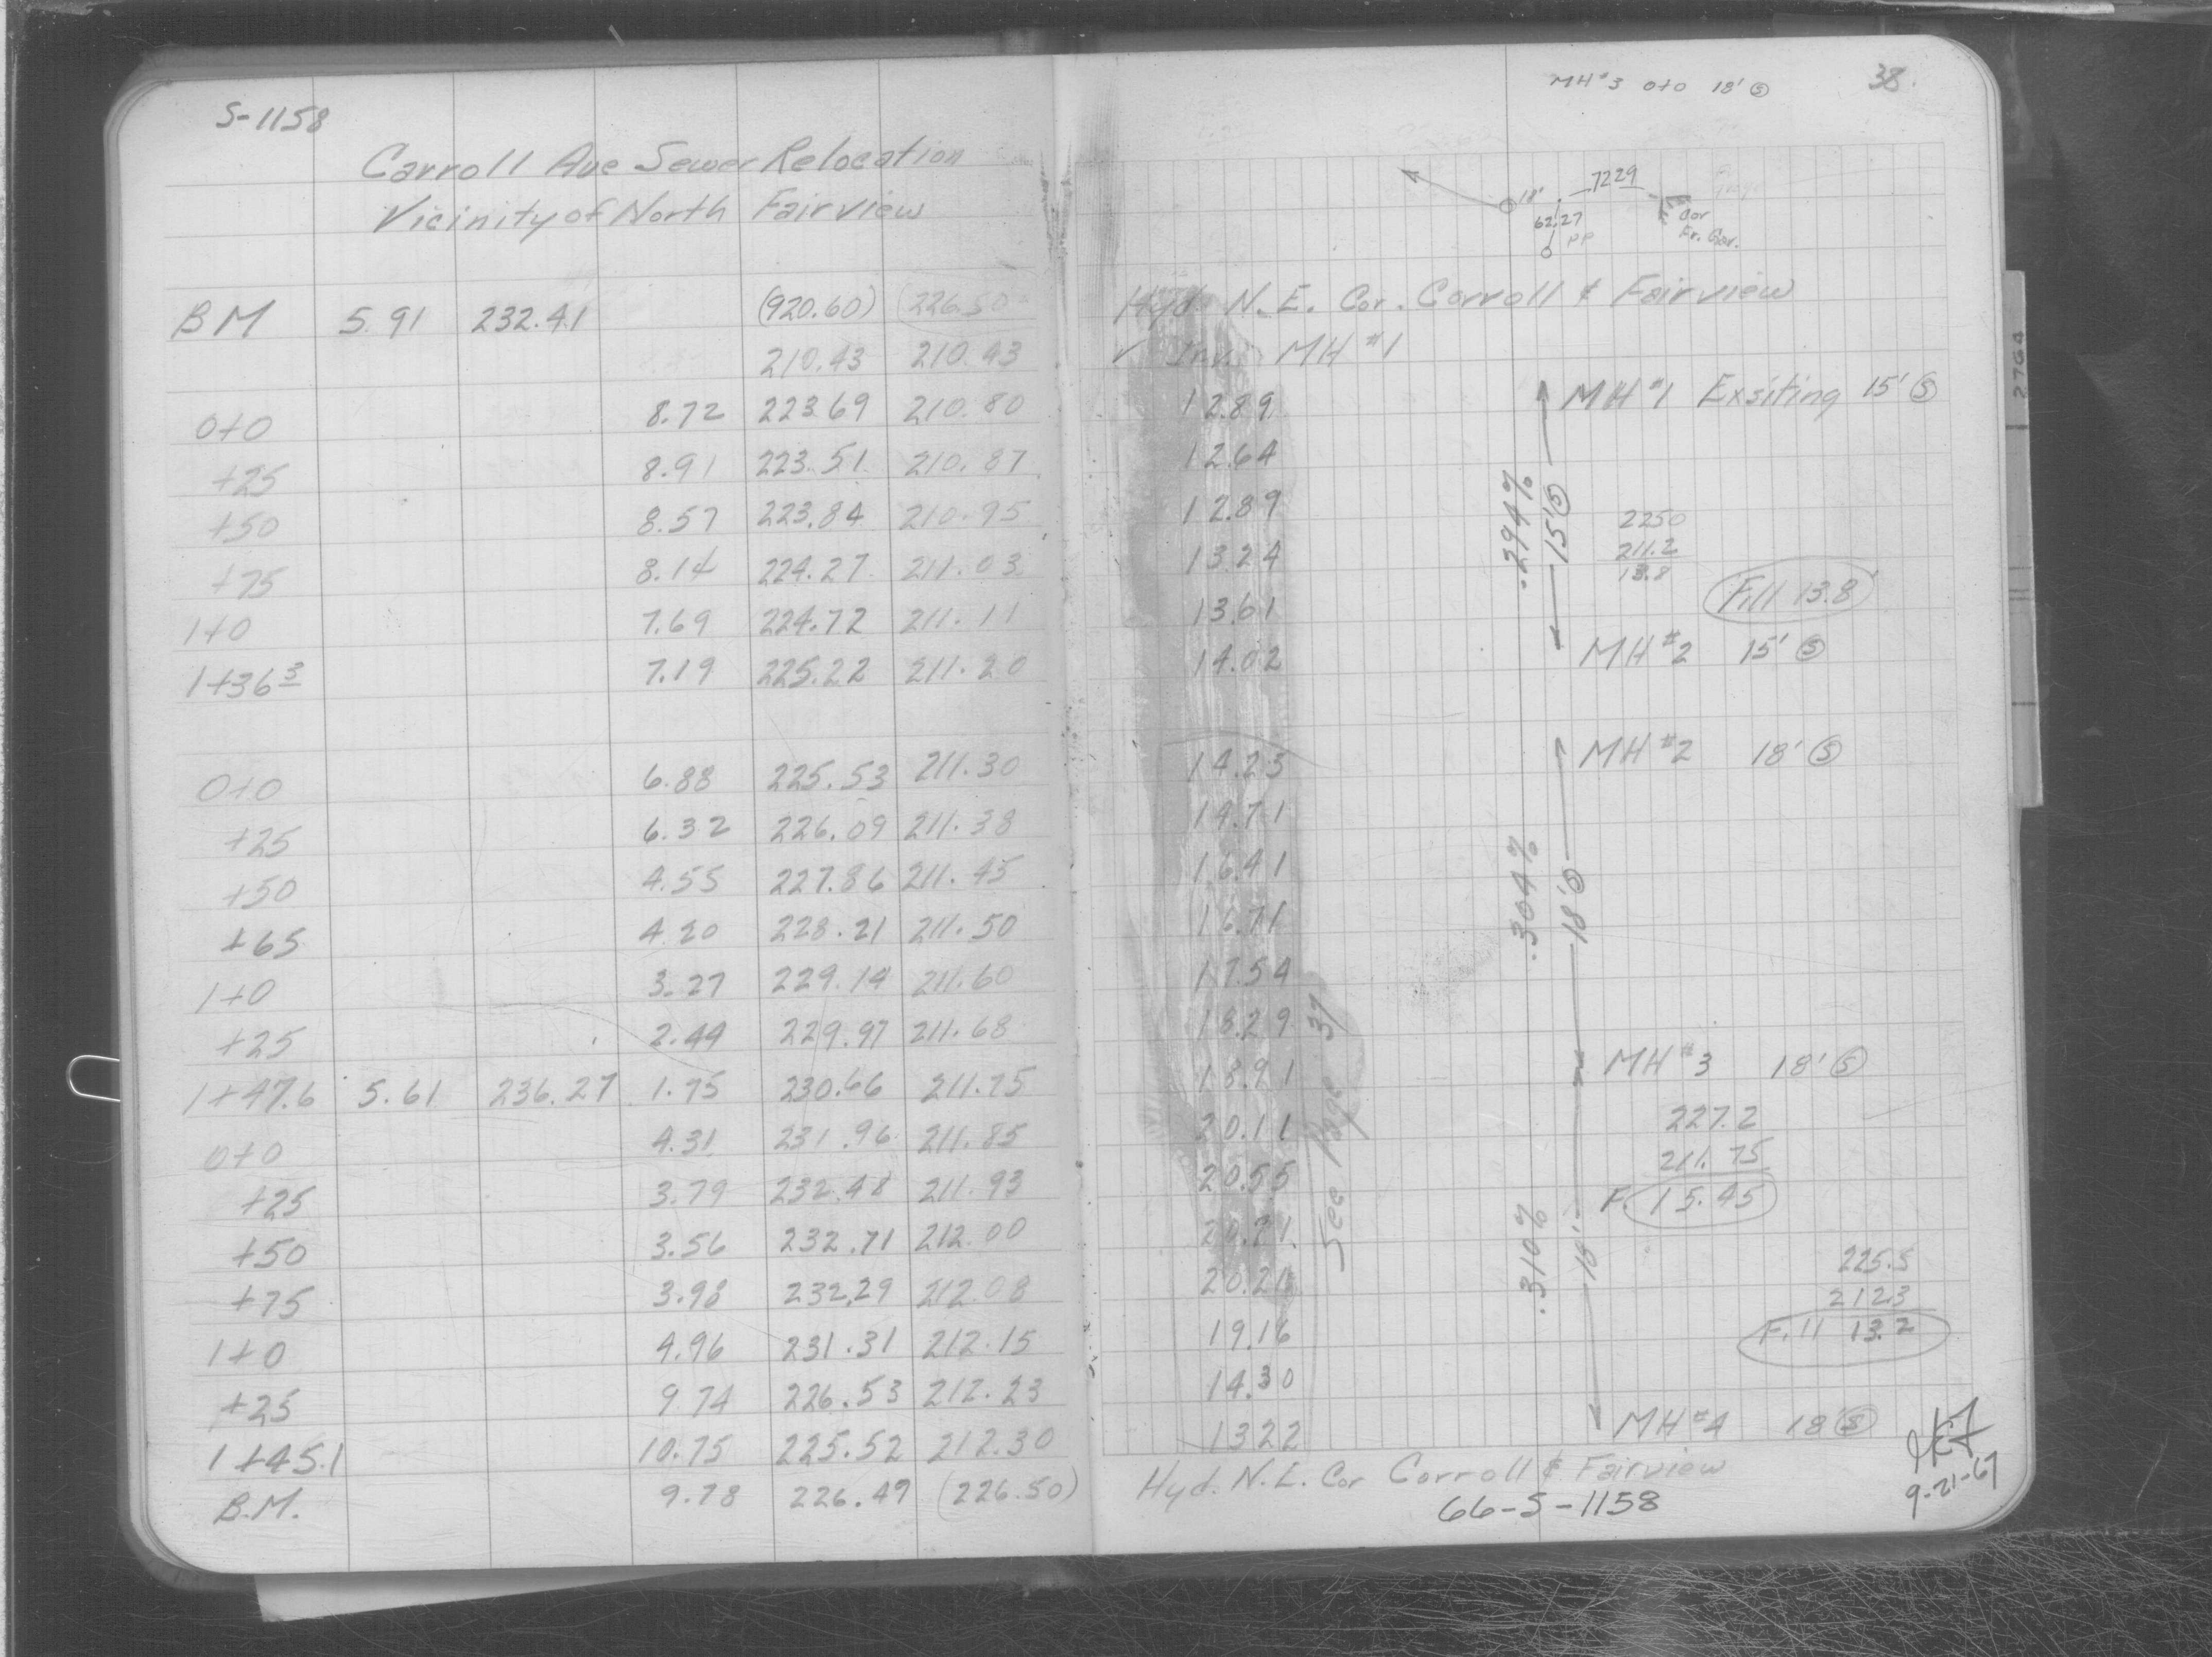 S-1158
Carroll Ave Sewer Relocation
Vicinity of North Fairview
BM 5.91 232.41 (920.60) (226.50)
210.43 210.43
0+0 8.72 223.69 210.80
+25 8.91 223.51 210.87
+50 8.57 223.84 210.95
+75 8.14 224.27 211.03
1+0 7.69 224.72 211.11
1+36 3 7.19 225.22 211.20
0+0 6.88 225.53 211.30
+25 6.32 226.09 211.38
+50 4.55 227.86 211.45
+65 4.20 228.21 211.50
1+0 3.27 229.14 211.60
+25 2.44 229.97 211.68
1+47.6 5.61 236.27 1.75 230.66 211.75
0+0 4.31 231.96 211.85
+25 3.79 232.48 211.93
+50 3.56 232.71 212.00
+75 3.98 232.29 212.08
1+0 4.96 231.31 212.15
+25 9.74 226.53 212.23
1+45.1 10.75 225.52 212.30
B.M. 9.78 226.49 (226.50)
MH #3 0+0 18' Ⓢ
38.
18' 72.29
62.27 Cor
PP Fr. Gar.
Hyd. N.E. Cor. Carroll & Fairview
✓ Inv. MH #1
12.89 MH #1 Exsiting 15' Ⓢ
12.64
12.89
13.24
13.61
14.02
.294%
15' Ⓢ
2250
211.2
13.8
Fill 13.8'
MH #2 15' Ⓢ
14.23 MH #2 18' Ⓢ
14.71
16.41
16.71
17.54
18.29
18.91
.304%
18' Ⓢ
MH #3 18' Ⓢ
20.11
20.55
20.71
20.21
19.16
14.30
13.22
See Page 37
227.2
211.75
F. 15.45
.310%
18'
225.5
212.3
Fill 13.2
MH #4 18' Ⓢ
Hyd. N.E. Cor Corroll & Fairview
66-S-1158
9-21-67
2764